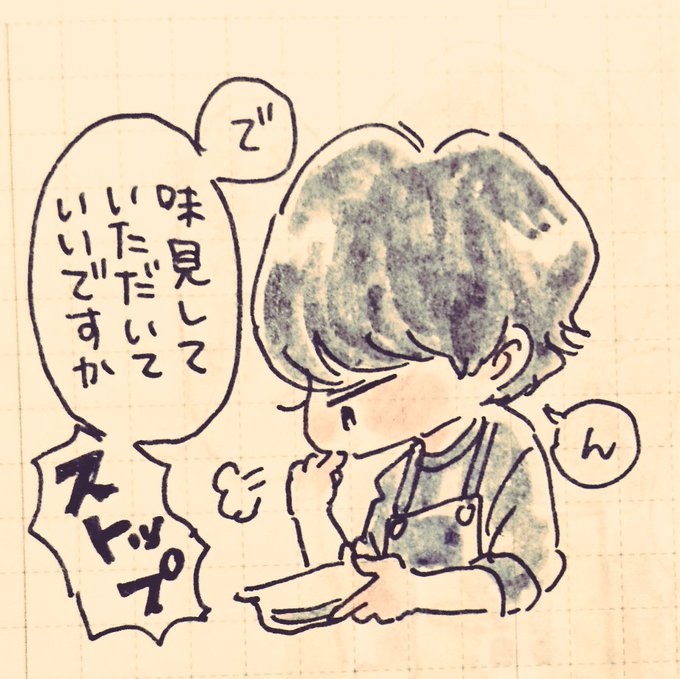 ん
で
味見して
いただいて
いいですか
ストップ